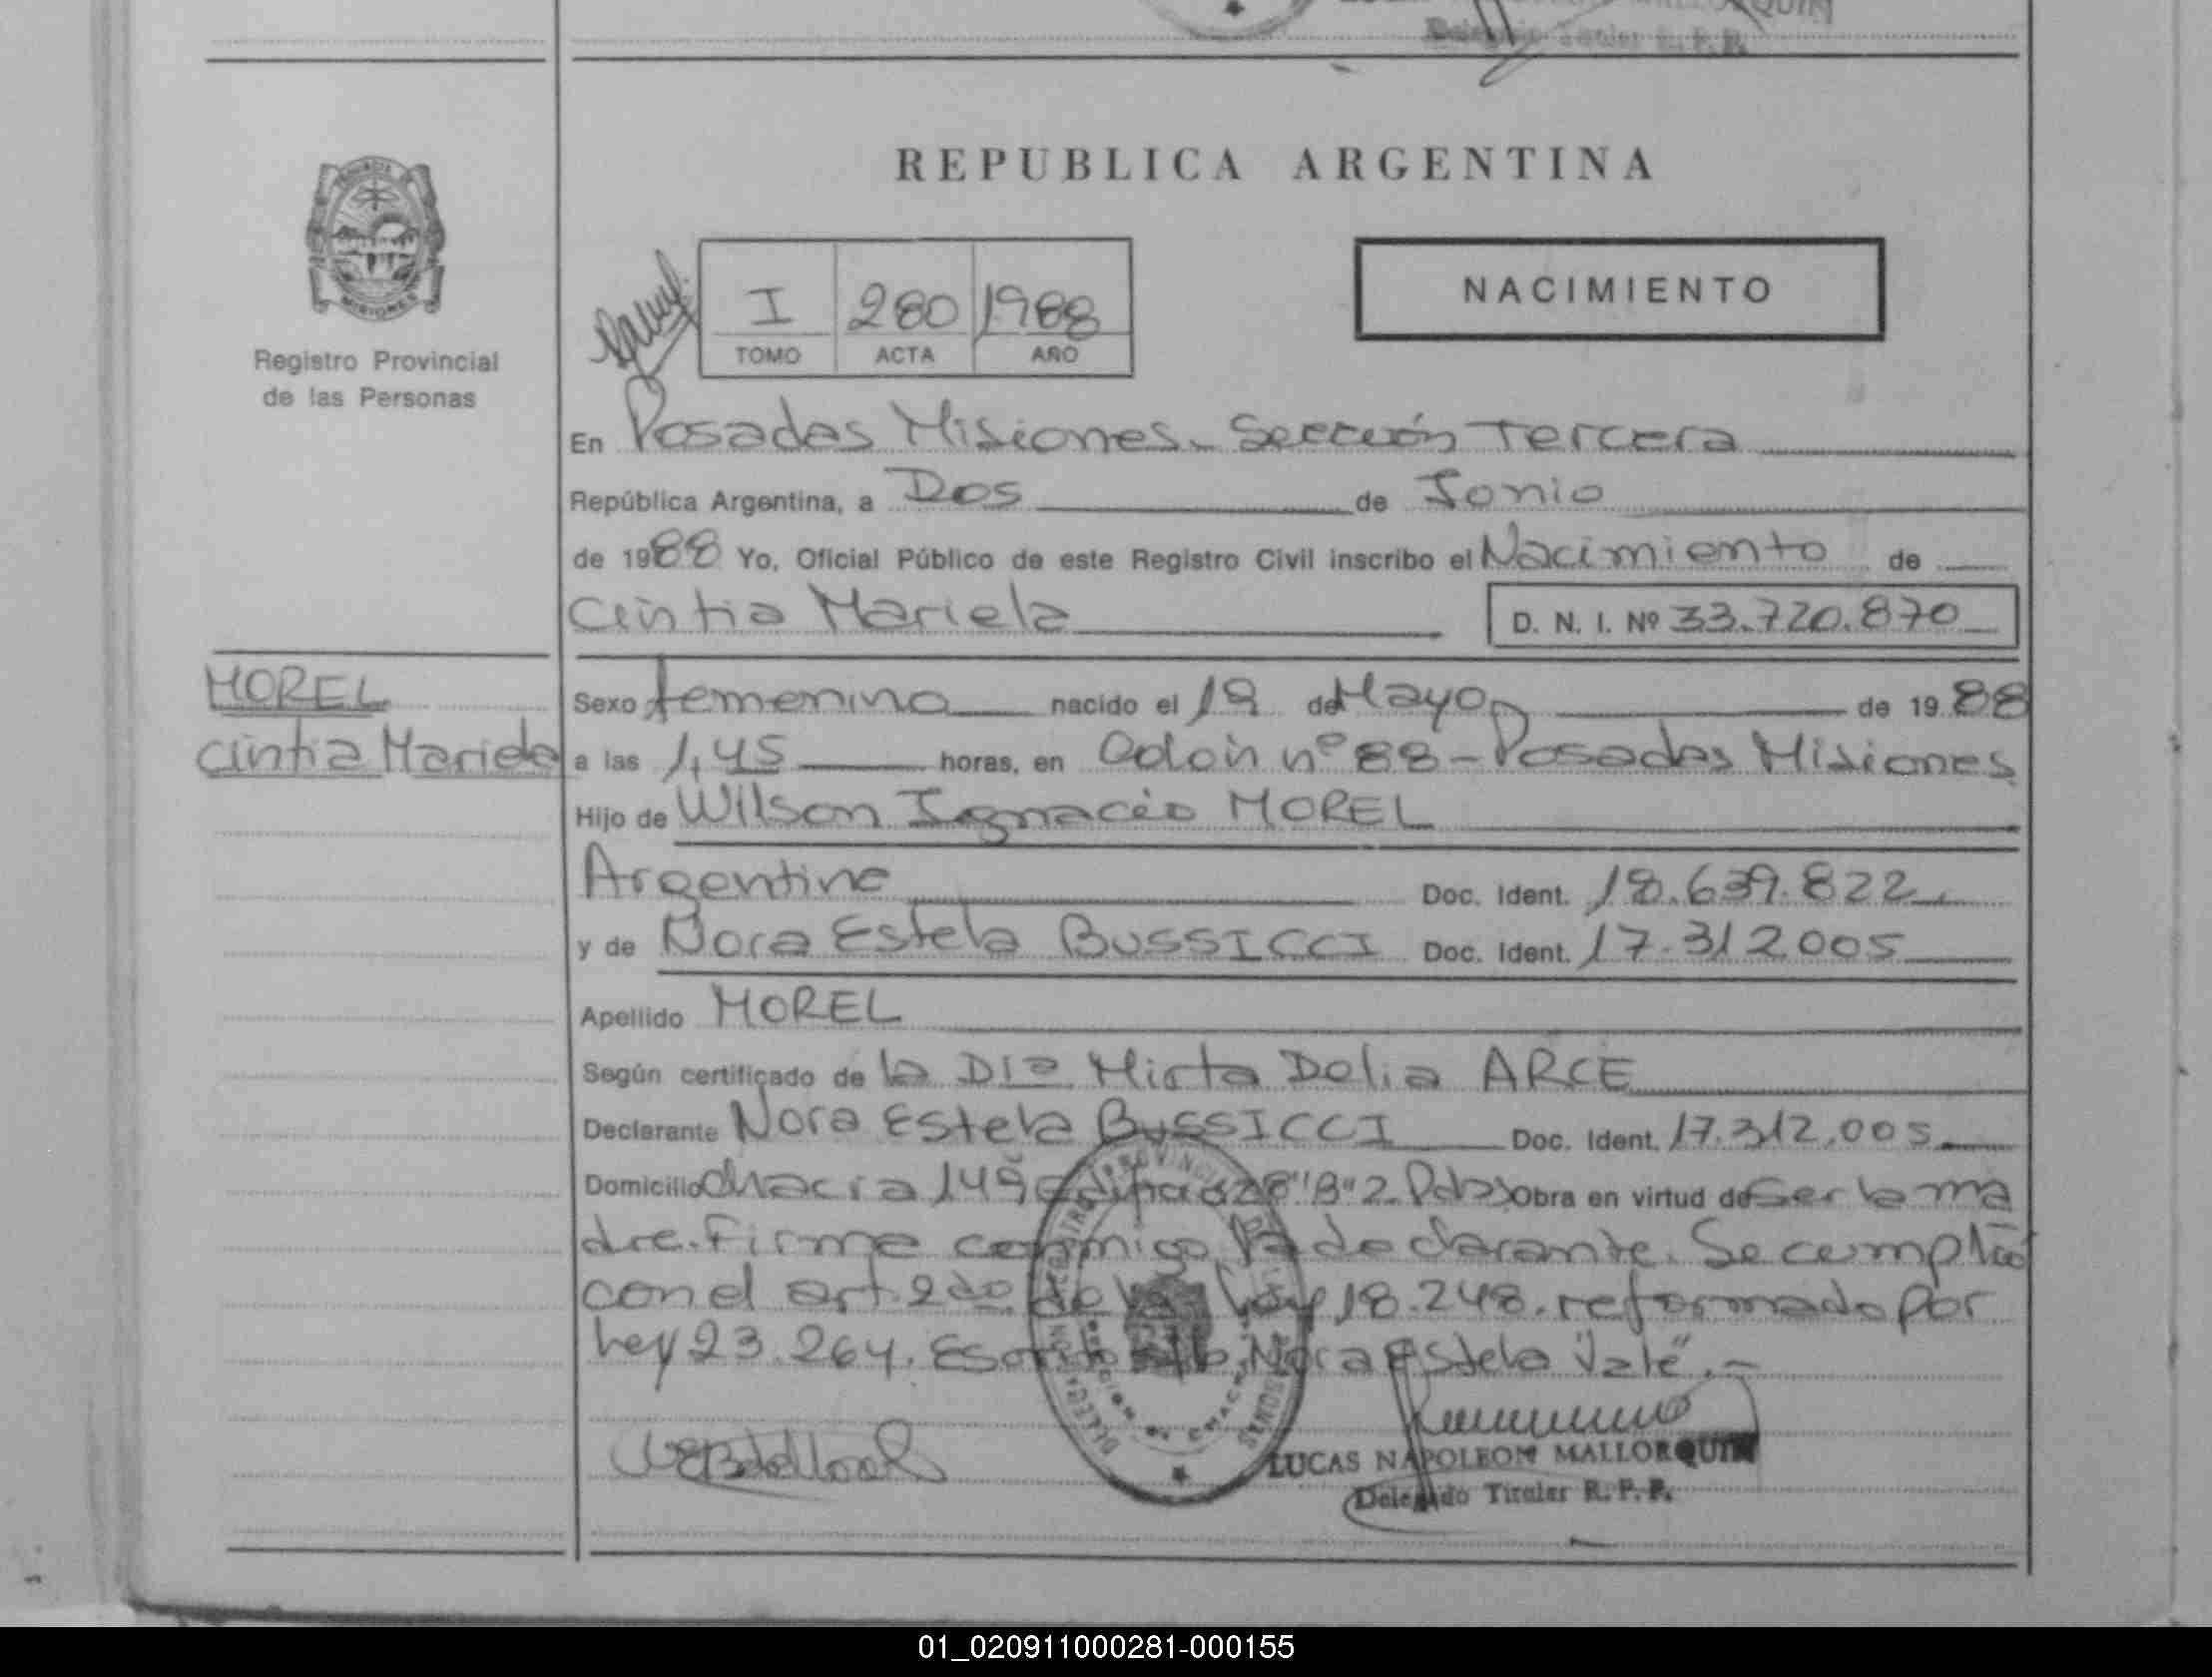 REPUBLICA ARGENTINA
NACIMIENTO
I 280 1988
TOMO ACTA AÑO
Registro Provincial
de las Personas
En Posadas Misiones - Sección Tercera
República Argentina, a Dos de Junio
de 1988 Yo, Oficial Público de este Registro Civil inscribo el Nacimiento de
Cintia Mariela D. N. I. Nº 33.720.870
MOREL
Cintia Mariela
Sexo femenino nacido el 19 de Mayo de 1988
a las 1,45 horas, en Colón nº 88 - Posadas Misiones
Hijo de Wilson Ignacio MOREL
Argentino Doc. Ident. 18.639.822
y de Nora Estela BUSSICCI Doc. Ident. 17.312005
Apellido MOREL
Según certificado de la Dra Mirta Delia ARCE
Declarante Nora Estela BUSSICCI Doc. Ident. 17.312.005
Domicilio Chacra 149 "B" 2. Pdas Obra en virtud de ser la ma
dre. Firma conmigo la declarante. Se cumplió
con el art. 2do de la Ley 18.248. reformado por
Ley 23.264. Nora Estela "Vale".-
LUCAS NAPOLEON MALLORQUIN
Delegado Titular R. P. P.
01_020911000281-000155